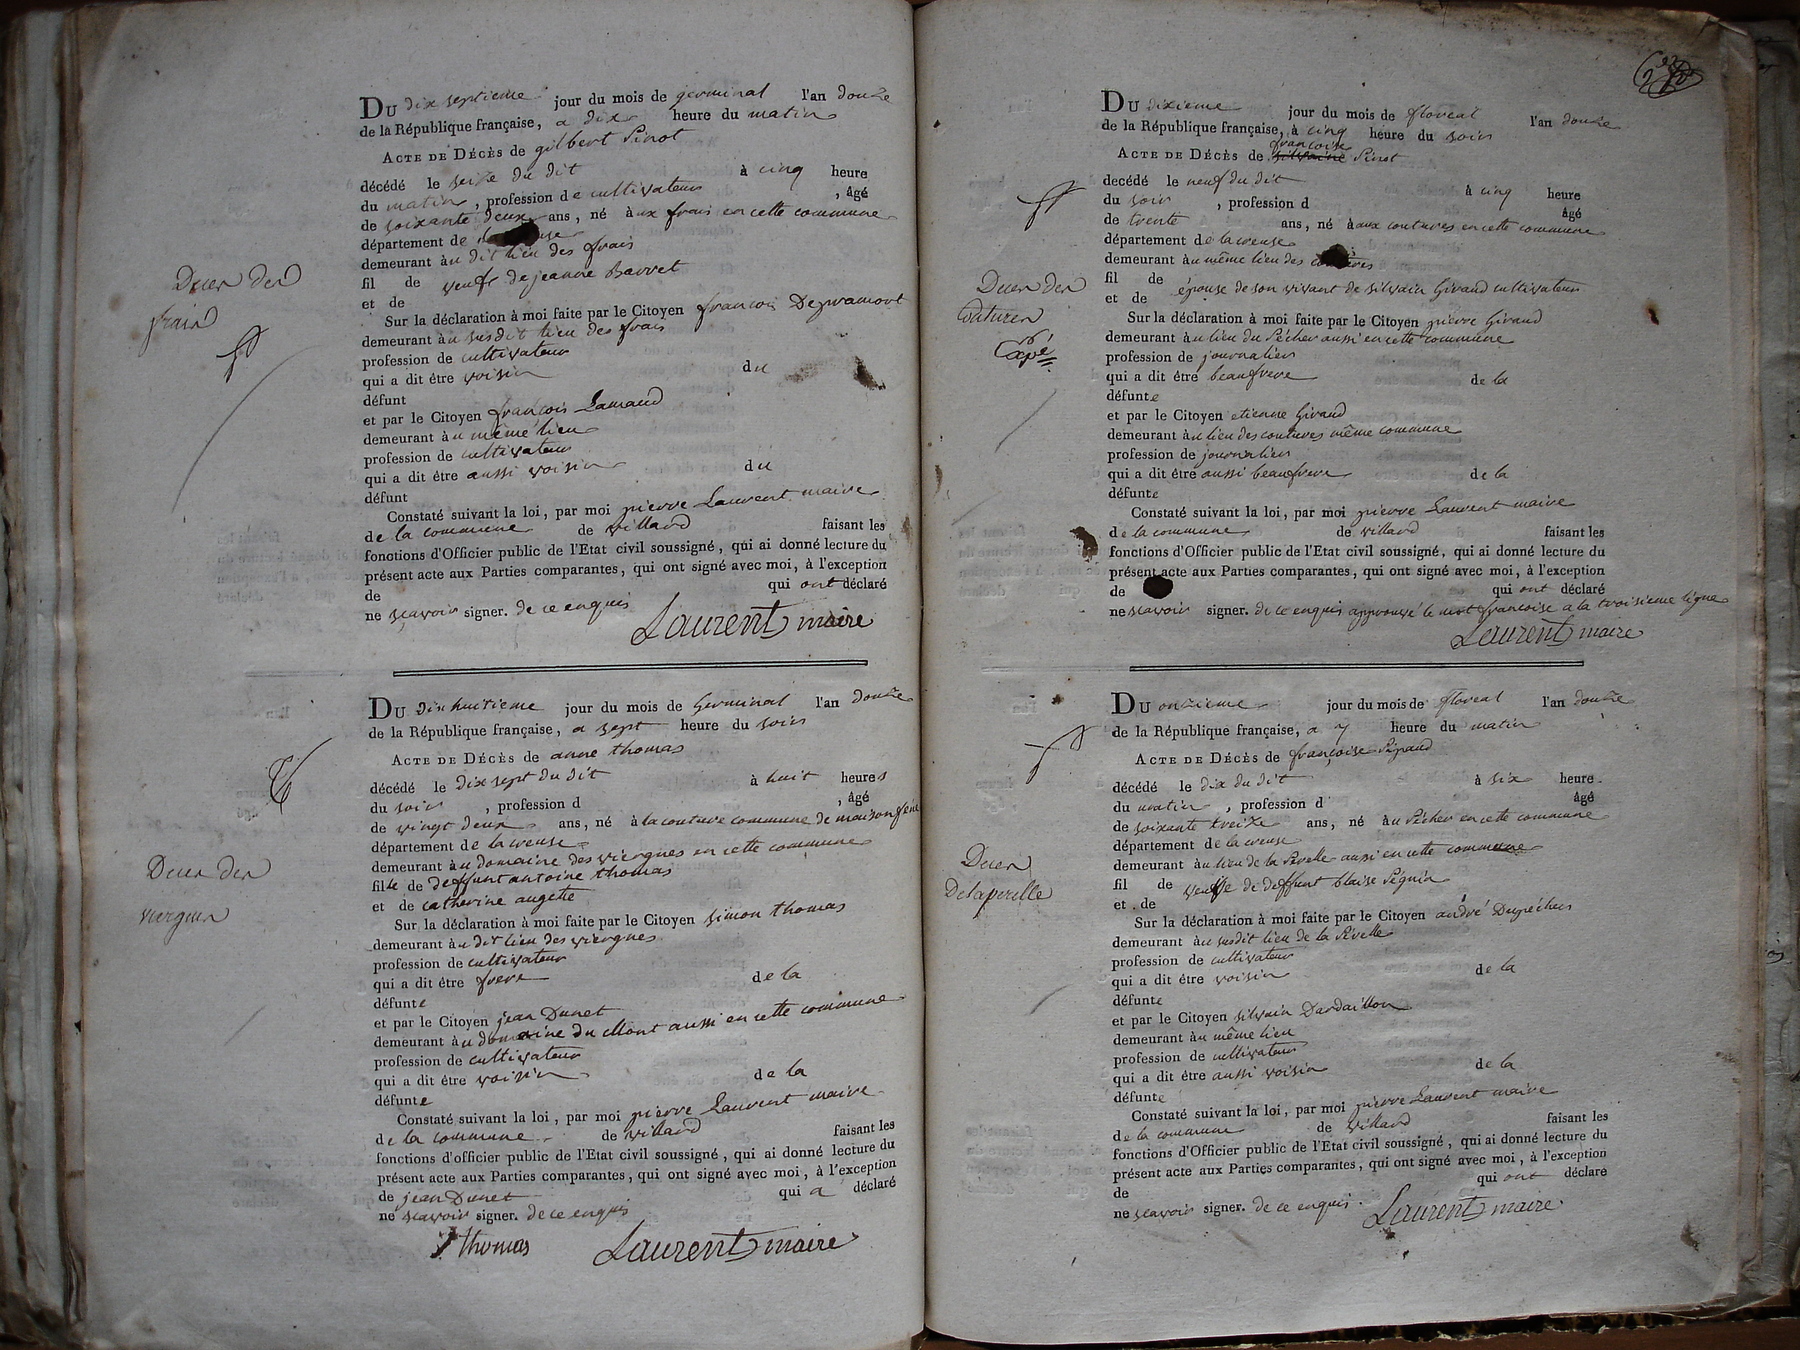 Du dix septieme jour du mois de germinal l'an douze
de la République française, a dix heure du matin
Acte de Décès de gilbert Pinot
décédé le seize du dit à cinq heure
du matin, profession de cultivateur, âgé
de soixante deux ans, né aux frais en cette commune
département de
demeurant au dit lieu des frais
fil de veuf de jeanne Barret
et de
Sur la déclaration à moi faite par le Citoyen francois
demeurant au susdit lieu des frais
profession de cultivateur
qui a dit être voisin du
défunt
et par le Citoyen françois Lamaud
demeurant au même lieu
profession de cultivateur
qui a dit être aussi voisin du
défunt
Constaté suivant la loi, par moi pierre Laurent maire
de la commune de villard faisant les
fonctions d'Officier public de l'Etat civil soussigné, qui ai donné lecture du
présent acte aux Parties comparantes, qui ont signé avec moi, à l'exception
de qui ont déclaré
ne scavoir signer. de ce enquis
Laurent maire
Deces des
frais
Du dix huitieme jour du mois de Germinal l'an douze
de la République française, a sept heure du soir
Acte de Décès de anne thomas
décédé le dix sept du dit à huit heures
du soir, profession d , âgé
de vingt deux ans, né à la couture commune de maisonfeine
département de la creuse
demeurant au domaine des viergnes en cette commune
fille de deffunt antoine thomas
et de catherine augette
Sur la déclaration à moi faite par le Citoyen simon thomas
demeurant au dit lieu des viergnes
profession de cultivateur
qui a dit être frere de la
défunte
et par le Citoyen jean Dunet
demeurant au domaine du Mont aussi en cette commune
profession de cultivateur
qui a dit être voisin de la
défunte
Constaté suivant la loi, par moi pierre Laurent maire
de la commune de villard faisant les
fonctions d'officier public de l'Etat civil soussigné, qui ai donné lecture du
présent acte aux Parties comparantes, qui ont signé avec moi, à l'exception
de jean Dunet qui a déclaré
ne scavoir signer. de ce enquis
thomas Laurent maire
Deces des
viergnes
Du dixieme jour du mois de floreal l'an douze
de la République française, à cinq heure du soir
françoise
Acte de Décès de silvaine Pinot
decédé le neuf du dit à cinq heure
du soir, profession d âgé
de trente ans, né aux coutures en cette commune
département de la creuse
demeurant au même lieu des coutures
fil de épouse de son vivant de silvain Giraud cultivateur
et de
Sur la déclaration à moi faite par le Citoyen pierre Giraud
demeurant au lieu du Pécher aussi en cette commune
profession de journalier
qui a dit être beaufrere de la
défunte
et par le Citoyen etienne Giraud
demeurant au lieu des coutures même commune
profession de journalier
qui a dit être aussi beaufrere de la
défunte
Constaté suivant la loi, par moi pierre Laurent maire
de la commune de villard faisant les
fonctions d'Officier public de l'Etat civil soussigné, qui ai donné lecture du
présent acte aux Parties comparantes, qui ont signé avec moi, à l'exception
de qui ont déclaré
ne scavoir signer. de ce enquis approuvé le mot françoise a la troisieme ligne
Laurent maire
Deces des
Coutures
Du onzieme jour du mois de floreal l'an douze
de la République française, a 7 heure du matin
Acte de Décès de françoise Pigaud
décédé le dix du dit à six heure
du matin, profession d âgé
de soixante treize ans, né au Pécher en cette commune
département de la creuse
demeurant au lieu de la Pérelle aussi en cette commune
fil de veuffe de deffunt blaise Péguin
et de
Sur la déclaration à moi faite par le Citoyen andré Dupécher
demeurant au susdit lieu de la Pérelle
profession de cultivateur
qui a dit être voisin de la
défunte
et par le Citoyen silvain Dardaillon
demeurant au même lieu
profession de cultivateur
qui a dit être aussi voisin de la
défunte
Constaté suivant la loi, par moi pierre Laurent maire
de la commune de villard faisant les
fonctions d'Officier public de l'Etat civil soussigné, qui ai donné lecture du
présent acte aux Parties comparantes, qui ont signé avec moi, à l'exception
de qui ont déclaré
ne scavoir signer. de ce enquis.
Laurent maire
Deces
Delaperelle